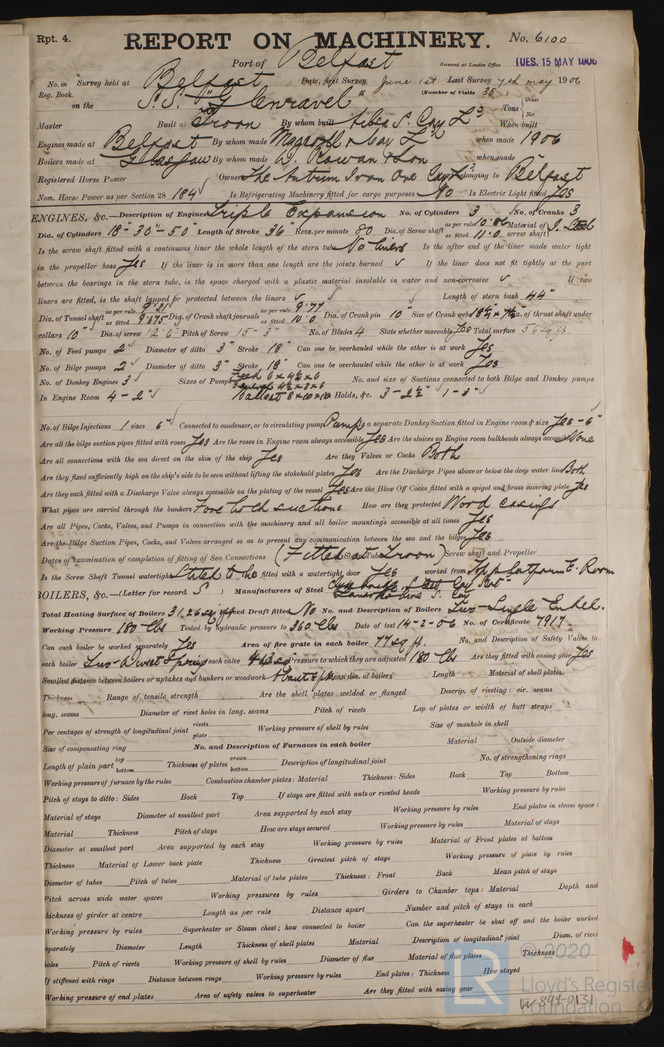 Rpt. 4.
REPORT ON MACHINERY.
No. 6100
Port of Belfast
Received at London Office TUES. 15 MAY 1906
No. in Survey held at Belfast Date, first Survey June 1st Last Survey 7th May 1906
Reg. Book. (Number of Visits 35)
on the S.S. "Glenravel" Tons { Gross Net
Master Built at Troon By whom built Ailsa S. Coy Ld When built
Engines made at Belfast By whom made MacColl & Coy Ld when made 1906
Boilers made at Glasgow By whom made D. Rowan & Son when made
Registered Horse Power Owners The Antrim Iron Ore Coy Ld Port belonging to Belfast
Nom. Horse Power as per Section 28 184 Is Refrigerating Machinery fitted for cargo purposes No Is Electric Light fitted Yes
ENGINES, &c.—Description of Engines Triple Expansion No. of Cylinders 3 No. of Cranks 3
Dia. of Cylinders 18"-30"-50" Length of Stroke 36" Revs. per minute 80 Dia. of Screw shaft as per rule 10.86 as fitted 11.0 Material of screw shaft S. Steel
Is the screw shaft fitted with a continuous liner the whole length of the stern tube No liners Is the after end of the liner made water tight
in the propeller boss Yes If the liner is in more than one length are the joints burned ✓ If the liner does not fit tightly at the part
between the bearings in the stern tube, is the space charged with a plastic material insoluble in water and non-corrosive ✓ If two
liners are fitted, is the shaft lapped or protected between the liners ✓ Length of stern bush 44"
Dia. of Tunnel shaft as per rule 9.31 as fitted 9.675 Dia. of Crank shaft journals as per rule 9.77 as fitted 10.0 Dia. of Crank pin 10" Size of Crank webs 18¾ x 7¼ Dia. of thrust shaft under
collars 10" Dia. of screw 12'6" Pitch of Screw 15'-3" No. of Blades 4 State whether moveable Yes Total surface 56 sq ft.
No. of Feed pumps 2 Diameter of ditto 3" Stroke 18" Can one be overhauled while the other is at work Yes
No. of Bilge pumps 2 Diameter of ditto 3" Stroke 18" Can one be overhauled while the other is at work Yes
No. of Donkey Engines 3 Sizes of Pumps Feed 6 x 4½ x 6 No. and size of Suctions connected to both Bilge and Donkey pumps
In Engine Room 4 - 2" Ballast 8 x 10 x 10 In Holds, &c. 3 - 2½" 1 - 3"
No. of Bilge Injections 1 sizes 6" Connected to condenser, or to circulating pump Pump Is a separate Donkey Suction fitted in Engine room & size Yes - 6"
Are all the bilge suction pipes fitted with roses Yes Are the roses in Engine room always accessible Yes Are the sluices on Engine room bulkheads always accessible None
Are all connections with the sea direct on the skin of the ship Yes Are they Valves or Cocks Both
Are they fixed sufficiently high on the ship's side to be seen without lifting the stokehold plates Yes Are the Discharge Pipes above or below the deep water line Both
Are they each fitted with a Discharge Valve always accessible on the plating of the vessel Yes Are the Blow Off Cocks fitted with a spigot and brass covering plate Yes
What pipes are carried through the bunkers Fore hold suctions How are they protected Wood casings
Are all Pipes, Cocks, Valves, and Pumps in connection with the machinery and all boiler mountings accessible at all times Yes
Are the Bilge Suction Pipes, Cocks, and Valves arranged so as to prevent any communication between the sea and the bilges Yes
Dates of examination of completion of fitting of Sea Connections (Fitted at Troon) Stern Tube Screw shaft and Propeller
Is the Screw Shaft Tunnel watertight Stated to be Is it fitted with a watertight door Yes worked from Top platform E. Room
BOILERS, &c.—(Letter for record S) Manufacturers of Steel
Total Heating Surface of Boilers 3126 sq ft Forced Draft fitted No No. and Description of Boilers Two Single Ended.
Working Pressure 180 lbs Tested by hydraulic pressure to 360 lbs Date of test 14-2-06 No. of Certificate 7917
Can each boiler be worked separately Yes Area of fire grate in each boiler 77 sq ft. No. and Description of Safety Valves to
each boiler Two Direct Spring Area of each valve Pressure to which they are adjusted 180 lbs Are they fitted with easing gear Yes
Smallest distance between boilers or uptakes and bunkers or woodwork Mean dia. of boilers Length Material of shell plates
Thickness Range of tensile strength Are the shell plates welded or flanged Descrip. of riveting: cir. seams
long. seams Diameter of rivet holes in long. seams Pitch of rivets Lap of plates or width of butt straps
Per centages of strength of longitudinal joint rivets plate Working pressure of shell by rules Size of manhole in shell
Size of compensating ring No. and Description of Furnaces in each boiler Material Outside diameter
Length of plain part top bottom Thickness of plates crown bottom Description of longitudinal joint No. of strengthening rings
Working pressure of furnace by the rules Combustion chamber plates: Material Thickness: Sides Back Top Bottom
Pitch of stays to ditto: Sides Back Top If stays are fitted with nuts or riveted heads Working pressure by rules
Material of stays Diameter at smallest part Area supported by each stay Working pressure by rules End plates in steam space:
Material Thickness Pitch of stays How are stays secured Working pressure by rules Material of stays
Diameter at smallest part Area supported by each stay Working pressure by rules Material of Front plates at bottom
Thickness Material of Lower back plate Thickness Greatest pitch of stays Working pressure of plate by rules
Diameter of tubes Pitch of tubes Material of tube plates Thickness: Front Back Mean pitch of stays
Pitch across wide water spaces Working pressures by rules Girders to Chamber tops: Material Depth and
thickness of girder at centre Length as per rule Distance apart Number and pitch of stays in each
Working pressure by rules Superheater or Steam chest; how connected to boiler Can the superheater be shut off and the boiler worked
separately Diameter Length Thickness of shell plates Material Description of longitudinal joint Diam. of rivet
holes Pitch of rivets Working pressure of shell by rules Diameter of flue Material of flue plates Thickness
If stiffened with rings Distance between rings Working pressure by rules End plates: Thickness How stayed
Working pressure of end plates Area of safety valves to superheater Are they fitted with easing gear
© 2020
LR
Lloyd's Register
Foundation
W-844-0131